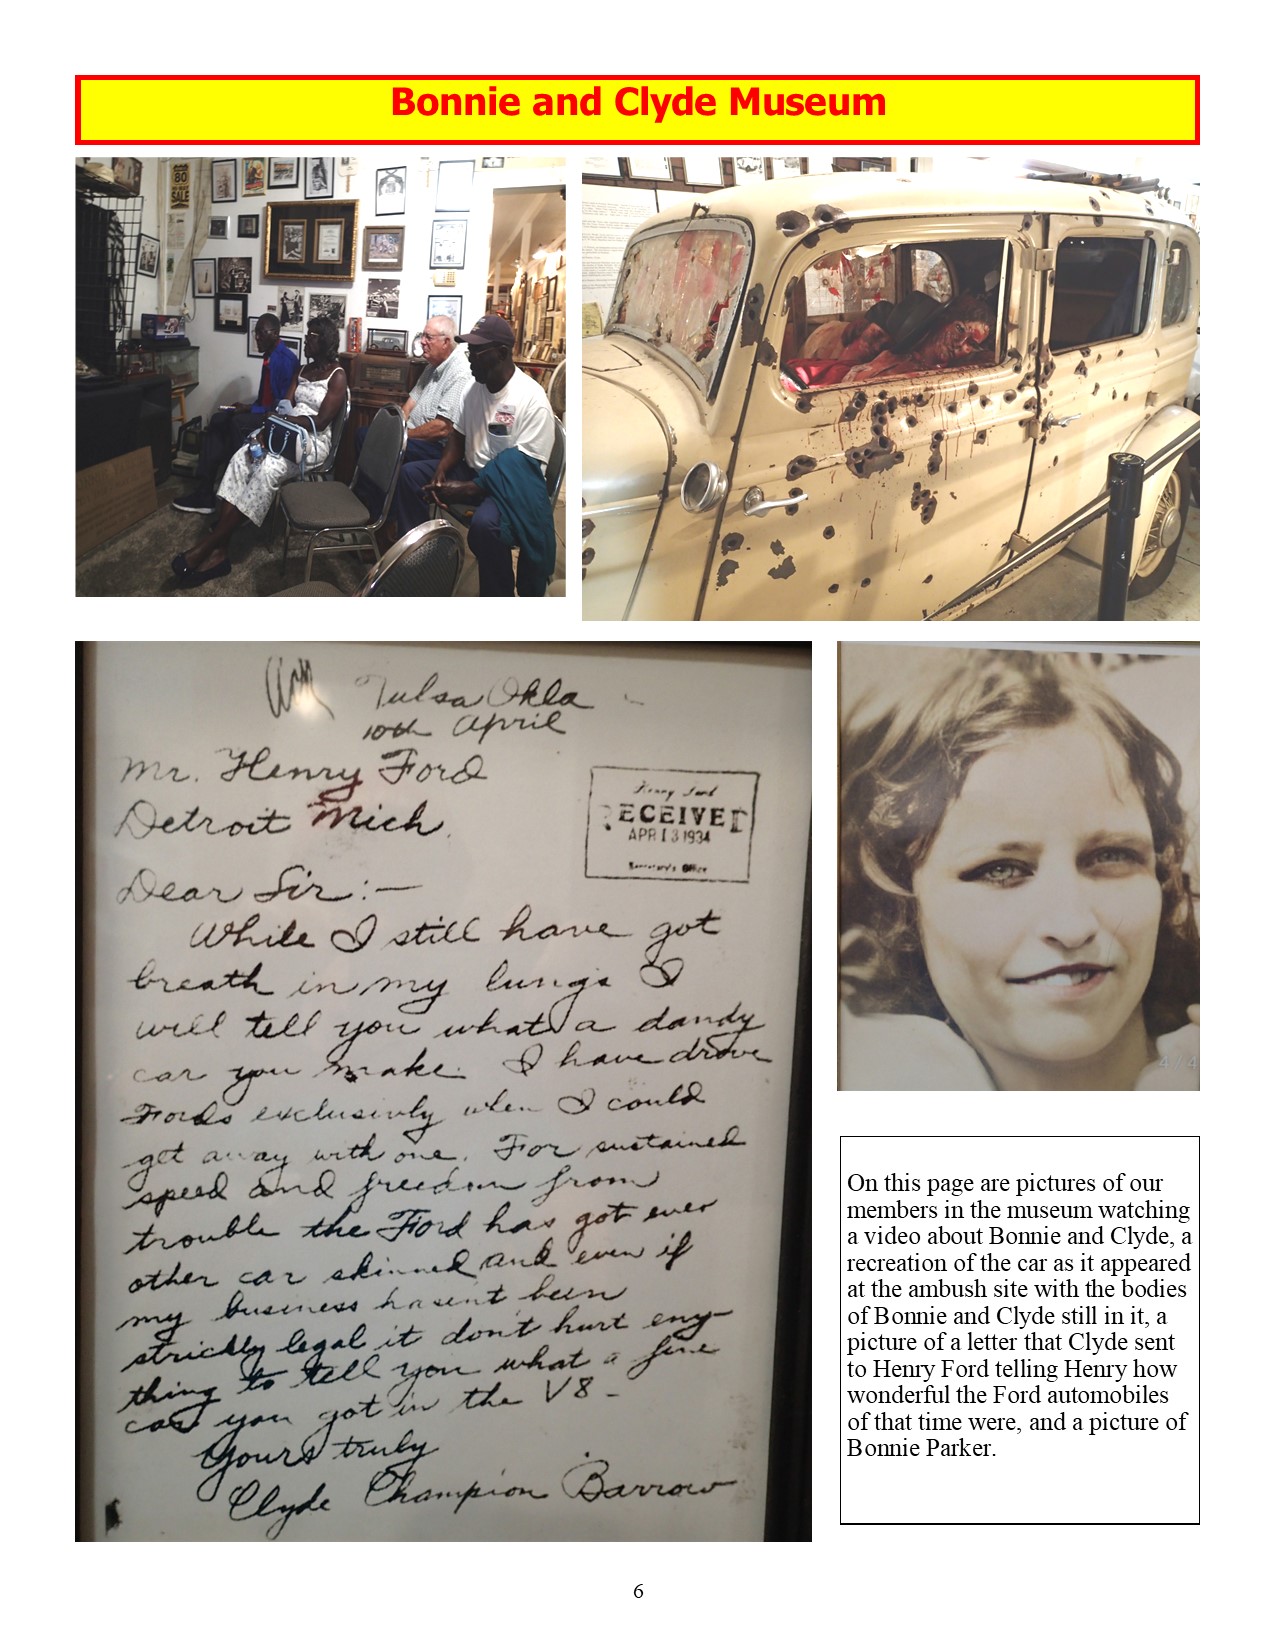 Bonnie and Clyde Museum
80
SALE
Tulsa Okla
10th April
Mr. Henry Ford
Detroit Mich.
Henry Ford
RECEIVED
APR 13 1934
Secretary's Office
Dear Sir:—
While I still have got
breath in my lungs I
will tell you what a dandy
car you make. I have drove
Fords exclusivly when I could
get away with one. For sustained
speed and freedom from
trouble the Ford has got ever
other car skinned and even if
my business hasen't been
strickly legal it don't hurt eny-
thing to tell you what a fine
car you got in the V8 -
Yours truly
Clyde Champion Barrow
On this page are pictures of our
members in the museum watching
a video about Bonnie and Clyde, a
recreation of the car as it appeared
at the ambush site with the bodies
of Bonnie and Clyde still in it, a
picture of a letter that Clyde sent
to Henry Ford telling Henry how
wonderful the Ford automobiles
of that time were, and a picture of
Bonnie Parker.
6